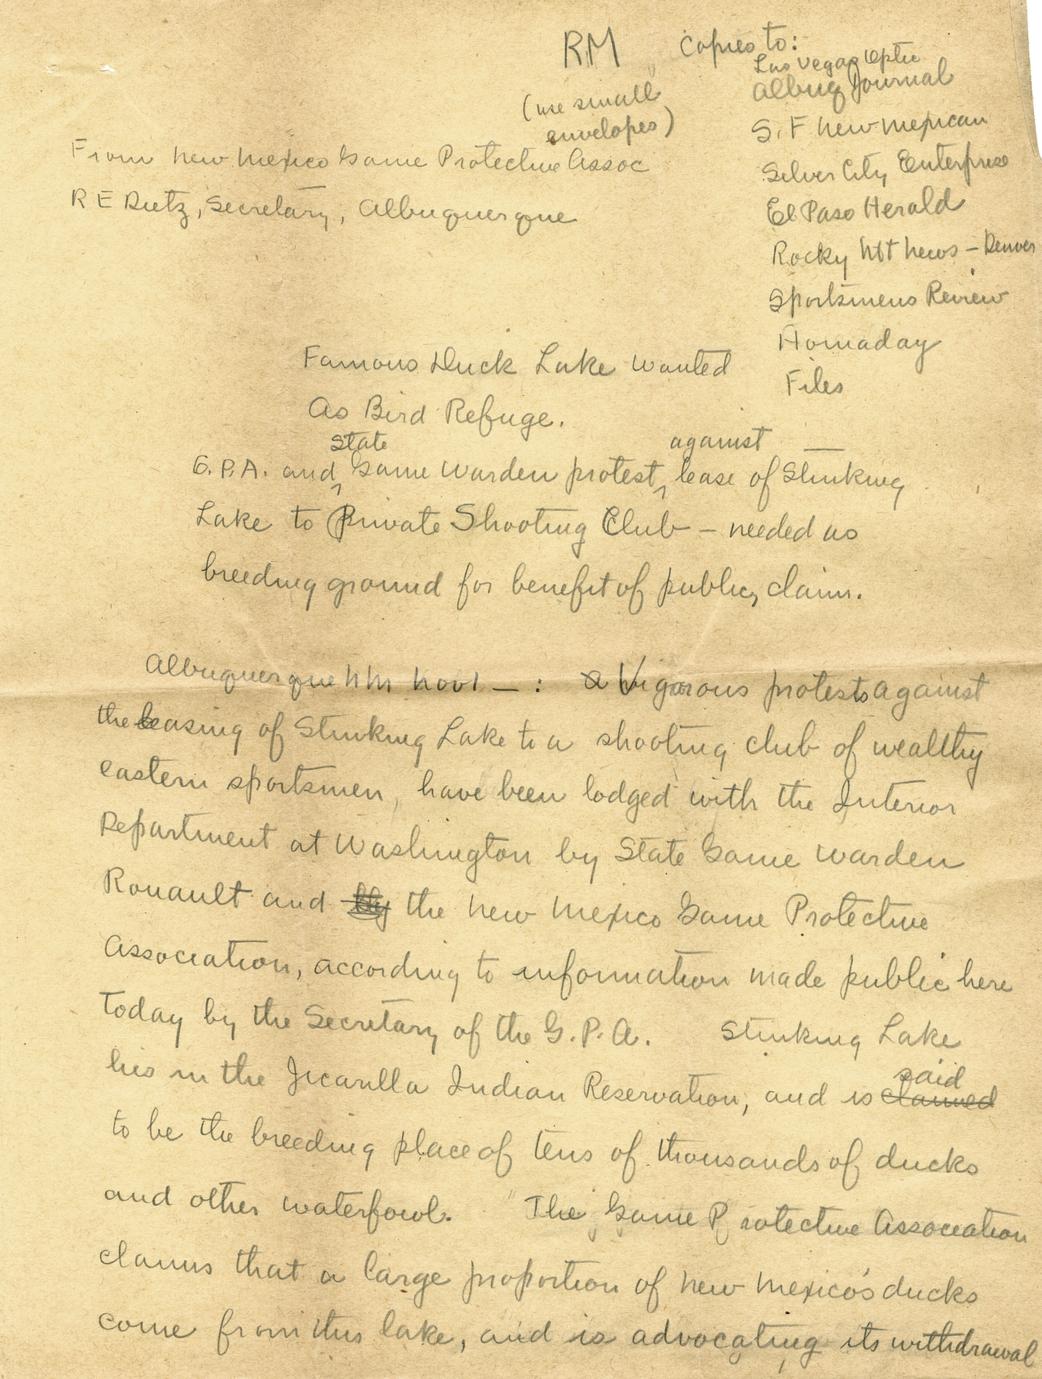 RM
Copies to:
Las Vegas Optic
Albuq Journal
S.F New Mexican
Silver City Enterprise
El Paso Herald
Rocky Mt News - Denver
Sportsmens Review
Hornaday
Files
(use small
envelopes)
From New Mexico Game Protective Assoc
R E Dietz, Secretary, Albuquerque
Famous Duck Lake Wanted
As Bird Refuge.
State against
G.P.A. and Game Warden protest lease of Stinking
Lake to Private Shooting Club – needed as
breeding ground for benefit of public, claim.
Albuquerque NM Nov 1 — : a Vigorous protests against
the leasing of Stinking Lake to a shooting club of wealthy
eastern sportsmen, have been lodged with the Interior
Department at Washington by State Game Warden
Rouault and by the New Mexico Game Protective
Association, according to information made public here
today by the Secretary of the G.P.A. Stinking Lake
said
lies in the Jicarilla Indian Reservation, and is claimed
to be the breeding place of tens of thousands of ducks
and other waterfowl. The Game Protective Association
claims that a large proportion of New Mexico's ducks
come from this lake, and is advocating its withdrawal